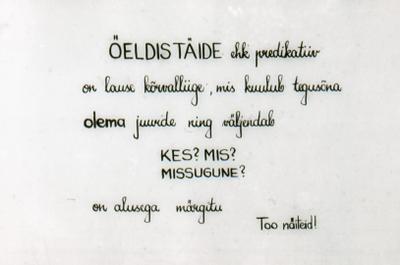 ÖELDISTÄIDE ehk predikatiiv
on lause kõrvalliige, mis kuulub tegusõna
olema juurde ning väljendab
KES? MIS?
MISSUGUNE?
on alusega märgitu
Too näiteid!